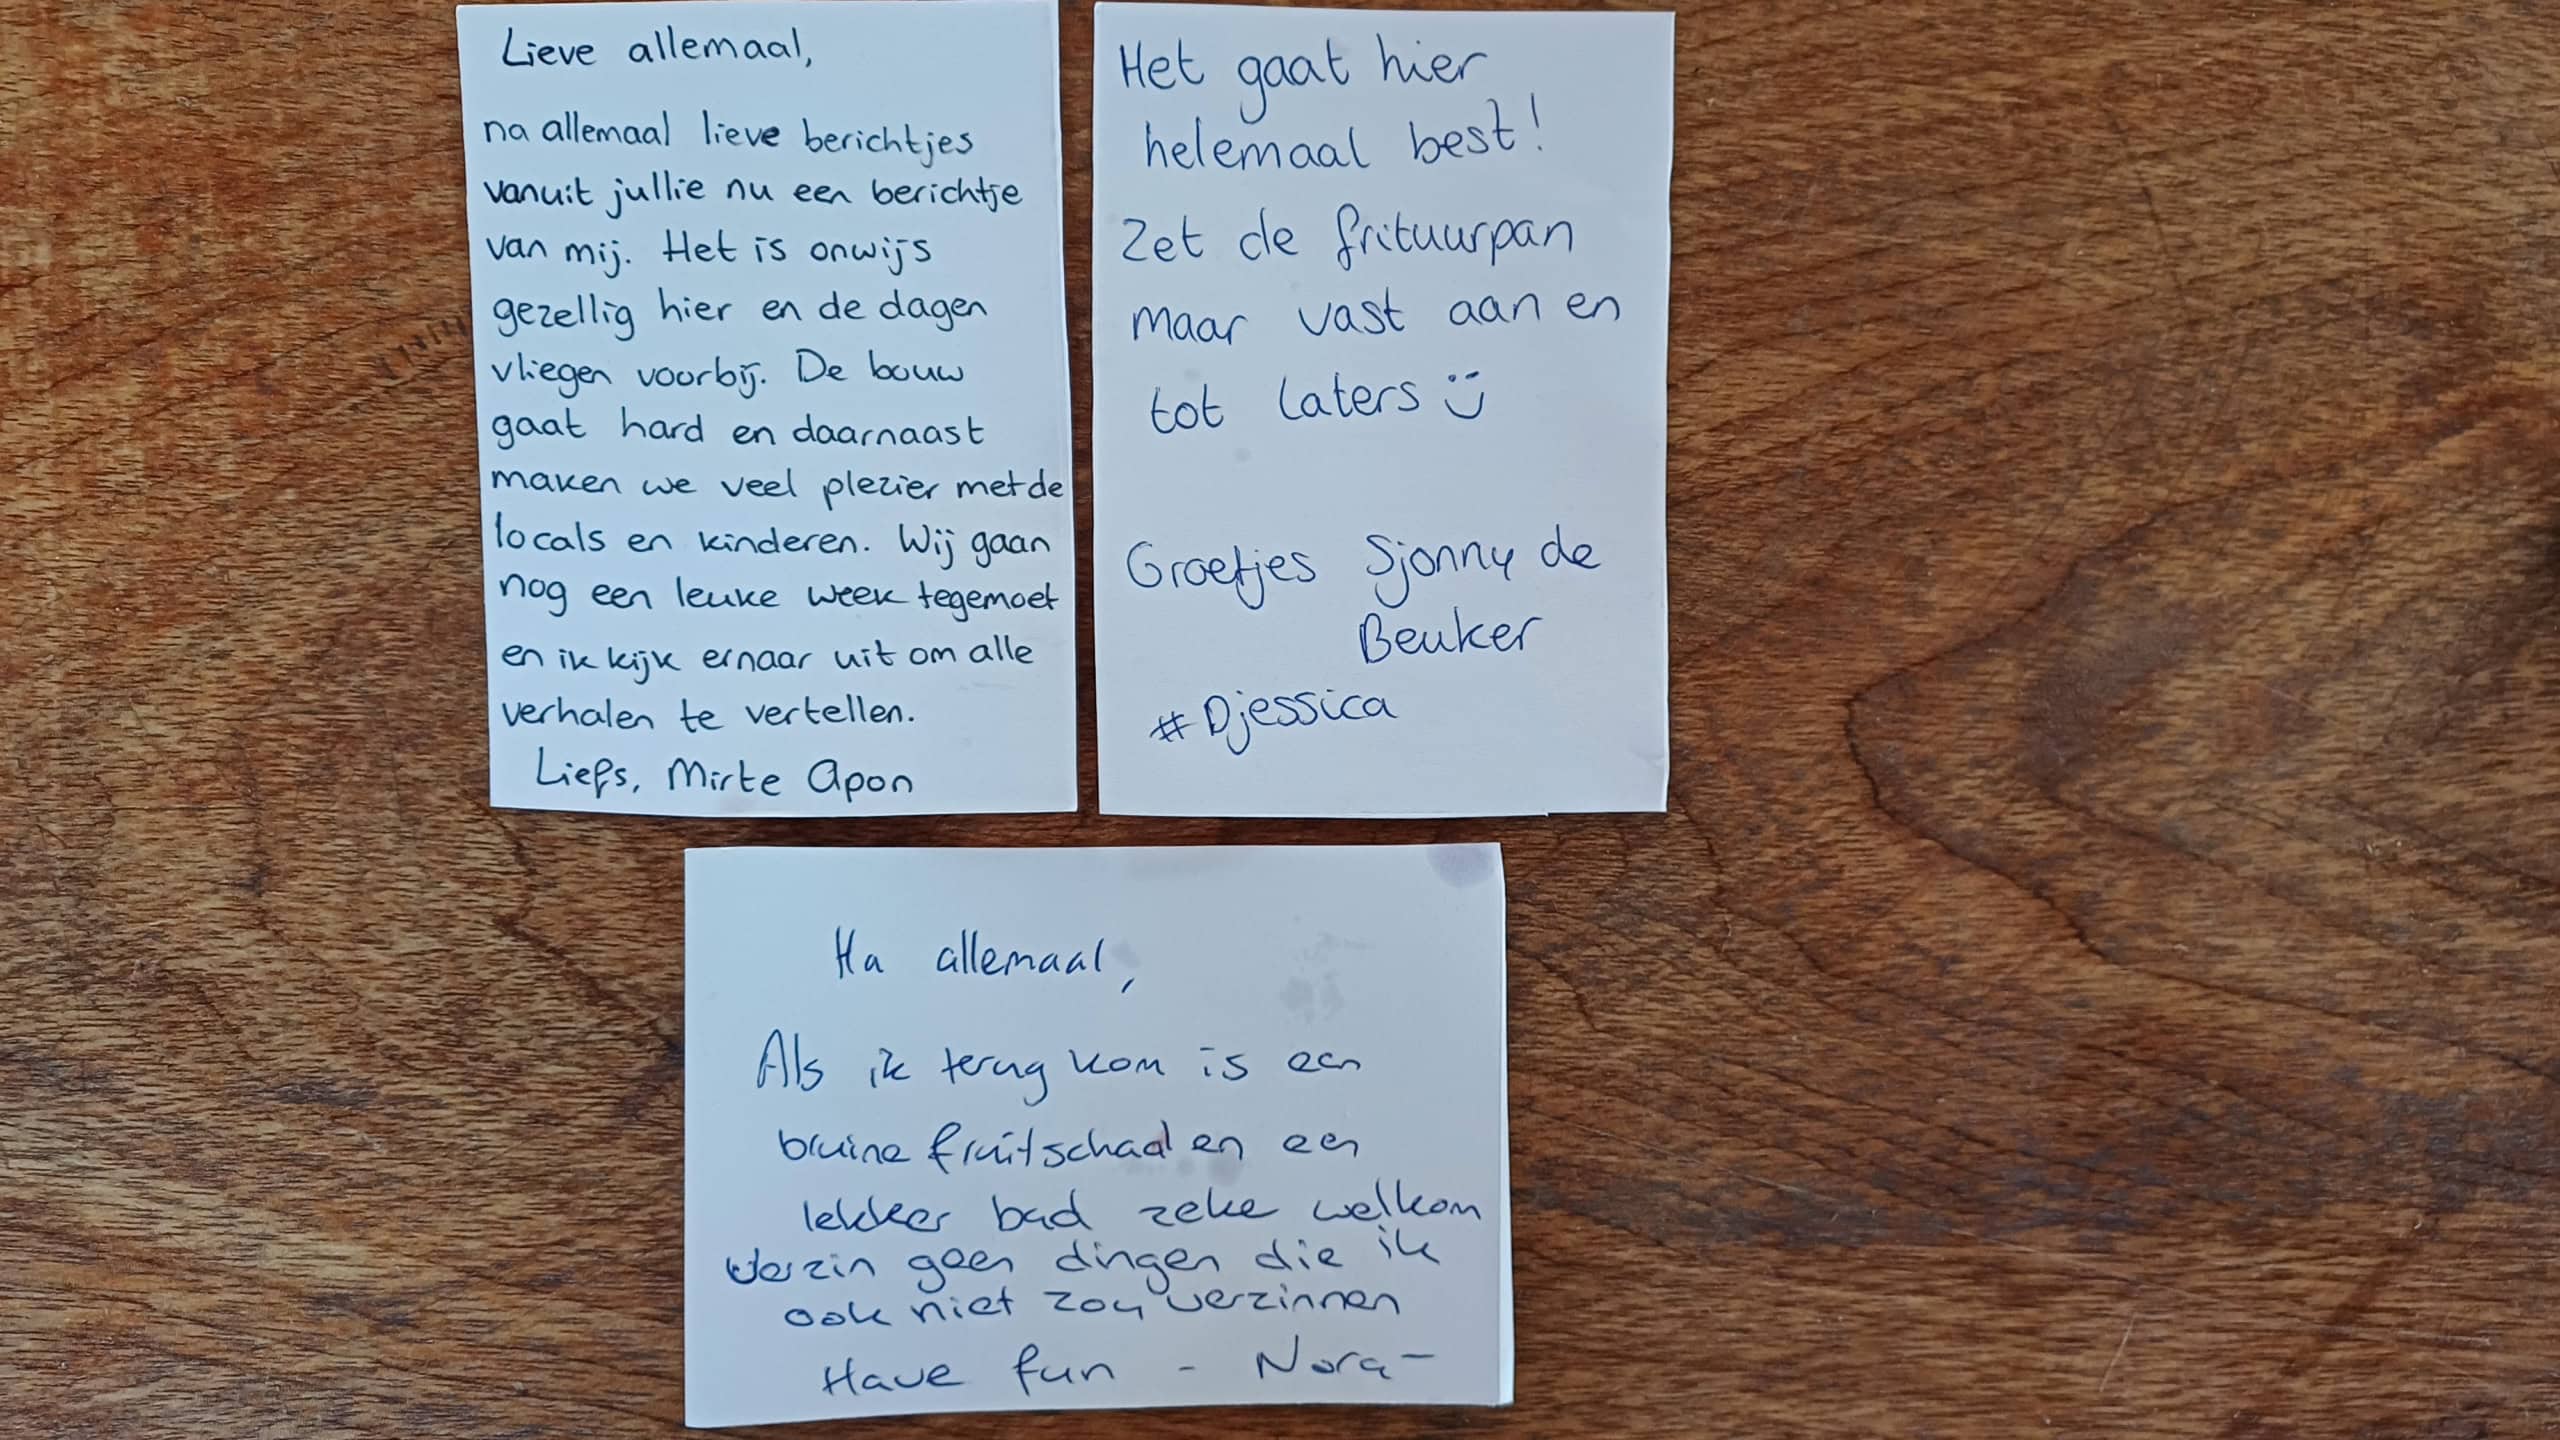 Lieve allemaal,
na allemaal lieve berichtjes
vanuit jullie nu een berichtje
van mij. Het is onwijs
gezellig hier en de dagen
vliegen voorbij. De bouw
gaat hard en daarnaast
maken we veel plezier met de
locals en kinderen. Wij gaan
nog een leuke week tegemoet
en ik kijk ernaar uit om alle
verhalen te vertellen.
Liefs, Mirte Apon
Het gaat hier
helemaal best!
Zet de frituurpan
maar vast aan en
tot laters :)
Groetjes Sjonny de
Beuker
#Djessica
Ha allemaal,
Als ik terug kom is een
bruine fruitschaal en een
lekker bad zeke welkom
Verzin geen dingen die ik
ook niet zou verzinnen
Have fun - Nora -